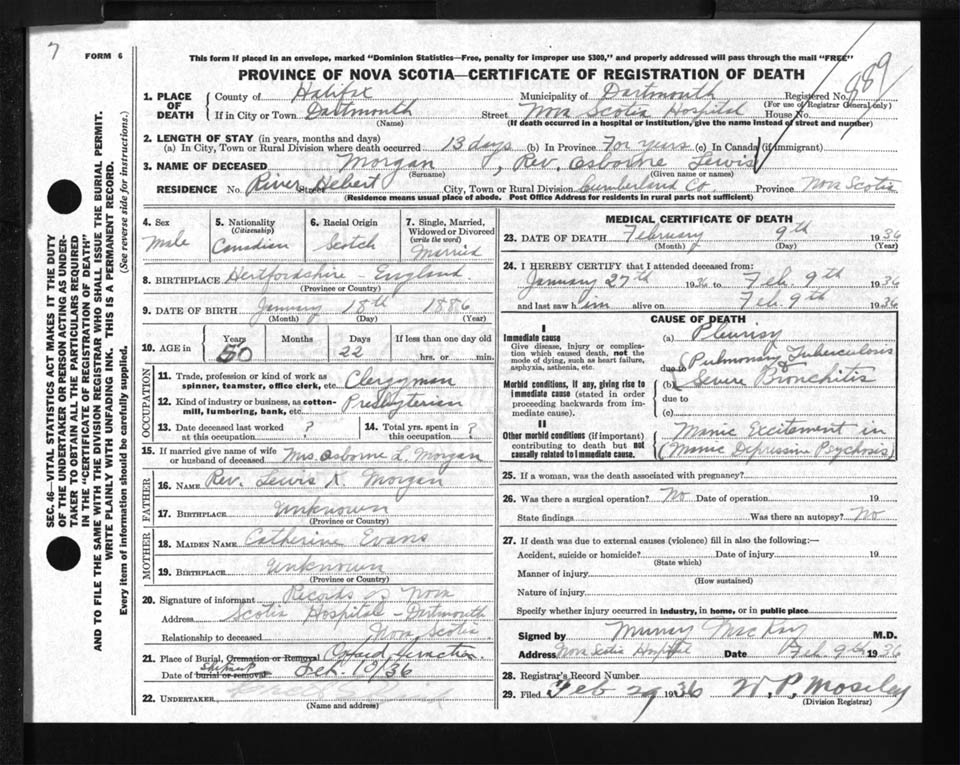 7
FORM 6
This form if placed in an envelope, marked "Dominion Statistics—Free, penalty for improper use $300," and properly addressed will pass through the mail "FREE"
PROVINCE OF NOVA SCOTIA—CERTIFICATE OF REGISTRATION OF DEATH
889
SEC. 46—VITAL STATISTICS ACT MAKES IT THE DUTY
OF THE UNDERTAKER OR PERSON ACTING AS UNDER-
TAKER TO OBTAIN ALL THE PARTICULARS REQUIRED
IN THE "CERTIFICATE OF REGISTRATION OF DEATH"
AND TO FILE THE SAME WITH THE DIVISION REGISTRAR WHO SHALL ISSUE THE BURIAL PERMIT.
WRITE PLAINLY WITH UNFADING INK. THIS IS A PERMANENT RECORD.
Every item of information should be carefully supplied. (See reverse side for instructions.)
1. PLACE OF DEATH County of Halifax Municipality of Dartmouth Registered No.
(For use of Registrar General only)
If in City or Town Dartmouth Street Nova Scotia Hospital House No.
(Name) (If death occurred in a hospital or institution, give the name instead of street and number)
2. LENGTH OF STAY (in years, months and days)
(a) In City, Town or Rural Division where death occurred 13 days (b) In Province For years (c) In Canada (if immigrant)
3. NAME OF DECEASED Morgan, Rev. Osborne Lewis
(Surname) (Given name or names)
RESIDENCE No. River Hebert Street City, Town or Rural Division Cumberland Co. Province Nova Scotia
(Residence means usual place of abode. Post Office Address for residents in rural parts not sufficient)
4. Sex
Male
5. Nationality
(Citizenship)
Canadian
6. Racial Origin
Scotch
7. Single, Married,
Widowed or Divorced
(write the word)
Married
8. BIRTHPLACE Hertfordshire England
(Province or Country)
9. DATE OF BIRTH January 18th 1886
(Month) (Day) (Year)
10. AGE in Years Months Days If less than one day old
50 22 hrs. or min.
OCCUPATION
11. Trade, profession or kind of work as
spinner, teamster, office clerk, etc. Clergyman
12. Kind of industry or business, as cotton-
mill, lumbering, bank, etc. Presbyterian
13. Date deceased last worked
at this occupation ?
14. Total yrs. spent in
this occupation ?
15. If married give name of wife
or husband of deceased Mrs. Osborne L. Morgan
FATHER
16. NAME Rev. Lewis K. Morgan
17. BIRTHPLACE Unknown
(Province or Country)
MOTHER
18. MAIDEN NAME Catherine Evans
19. BIRTHPLACE Unknown
(Province or Country)
20. Signature of informant Records of Nova
Address Scotia Hospital - Dartmouth
Relationship to deceased Nova Scotia
21. Place of Burial, Cremation or Removal Oxford Junction
Date of burial or removal Shipment Feb. 10/36
22. UNDERTAKER
(Name and address)
MEDICAL CERTIFICATE OF DEATH
23. DATE OF DEATH February 9th 1936
(Month) (Day) (Year)
24. I HEREBY CERTIFY that I attended deceased from:
January 27th 1936 to Feb. 9th 1936
and last saw him alive on Feb. 9th 1936
CAUSE OF DEATH
I
Immediate cause
Give disease, injury or complica-
tion which caused death, not the
mode of dying, such as heart failure,
asphyxia, asthenia, etc.
(a) Pleurisy
due to Pulmonary Tuberculosis
(b) Severe Bronchitis
due to
(c)
Morbid conditions, if any, giving rise to
immediate cause (stated in order
proceeding backwards from im-
mediate cause).
II
Other morbid conditions (if important)
contributing to death but not
causally related to immediate cause.
Manic Excitement in
(Manic Depressive Psychosis)
25. If a woman, was the death associated with pregnancy?
26. Was there a surgical operation? No Date of operation 19
State findings Was there an autopsy? No
27. If death was due to external causes (violence) fill in also the following:—
Accident, suicide or homicide? Date of injury 19
(State which)
Manner of injury
(How sustained)
Nature of injury
Specify whether injury occurred in industry, in home, or in public place
Signed by Murray MacKay M.D.
Address Nova Scotia Hospital Date Feb 9th 1936
28. Registrar's Record Number
29. Filed Feb 29 1936 W. P. Moseley
(Division Registrar)